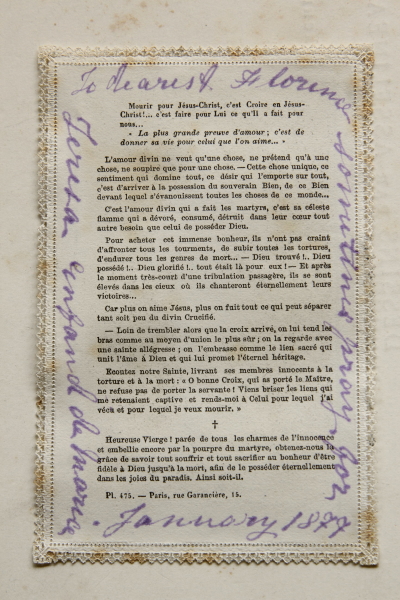 To dearest Florence
sometimes pray for
Teresa enfant de Marie.
January 1877
Mourir pour Jésus-Christ, c'est Croire en Jésus-
Christ!... c'est faire pour Lui ce qu'il a fait pour
nous...
« La plus grande preuve d'amour ; c'est de
donner sa vie pour celui que l'on aime... »
L'amour divin ne veut qu'une chose, ne prétend qu'à une
chose, ne soupire que pour une chose. — Cette chose unique, ce
sentiment qui domine tout, ce désir qui l'emporte sur tout,
c'est d'arriver à la possession du souverain Bien, de ce Bien
devant lequel s'évanouissent toutes les choses de ce monde...
C'est l'amour divin qui a fait les martyrs, c'est sa céleste
flamme qui a dévoré, consumé, détruit dans leur cœur tout
autre besoin que celui de posséder Dieu.
Pour acheter cet immense bonheur, ils n'ont pas craint
d'affronter tous les tourments, de subir toutes les tortures,
d'endurer tous les genres de mort... — Dieu trouvé !.. Dieu
possédé !.. Dieu glorifié !.. tout était là pour eux !— Et après
le moment très-court d'une tribulation passagère, ils se sont
élevés dans les cieux où ils chanteront éternellement leurs
victoires...
Car plus on aime Jésus, plus on fuit tout ce qui peut séparer
tant soit peu du divin Crucifié.
— Loin de trembler alors que la croix arrive, on lui tend les
bras comme au moyen d'union le plus sûr ; on la regarde avec
une sainte allégresse ; on l'embrasse comme le lien sacré qui
unit l'âme à Dieu et qui lui promet l'éternel héritage.
Ecoutez notre Sainte, livrant ses membres innocents à la
torture et à la mort : « O bonne Croix, qui as porté le Maître,
ne refuse pas de porter la servante ! Viens briser les liens qui
me retenaient captive et rends-moi à Celui pour lequel j'ai
vécu et pour lequel je veux mourir. »
†
Heureuse Vierge ! parée de tous les charmes de l'innocence
et embellie encore par la pourpre du martyre, obtenez-nous la
grâce de savoir tout souffrir et tout sacrifier au bonheur d'être
fidèle à Dieu jusqu'à la mort, afin de le posséder éternellement
dans les joies du paradis. Ainsi soit-il.
Pl. 475. — Paris, rue Garancière, 15.